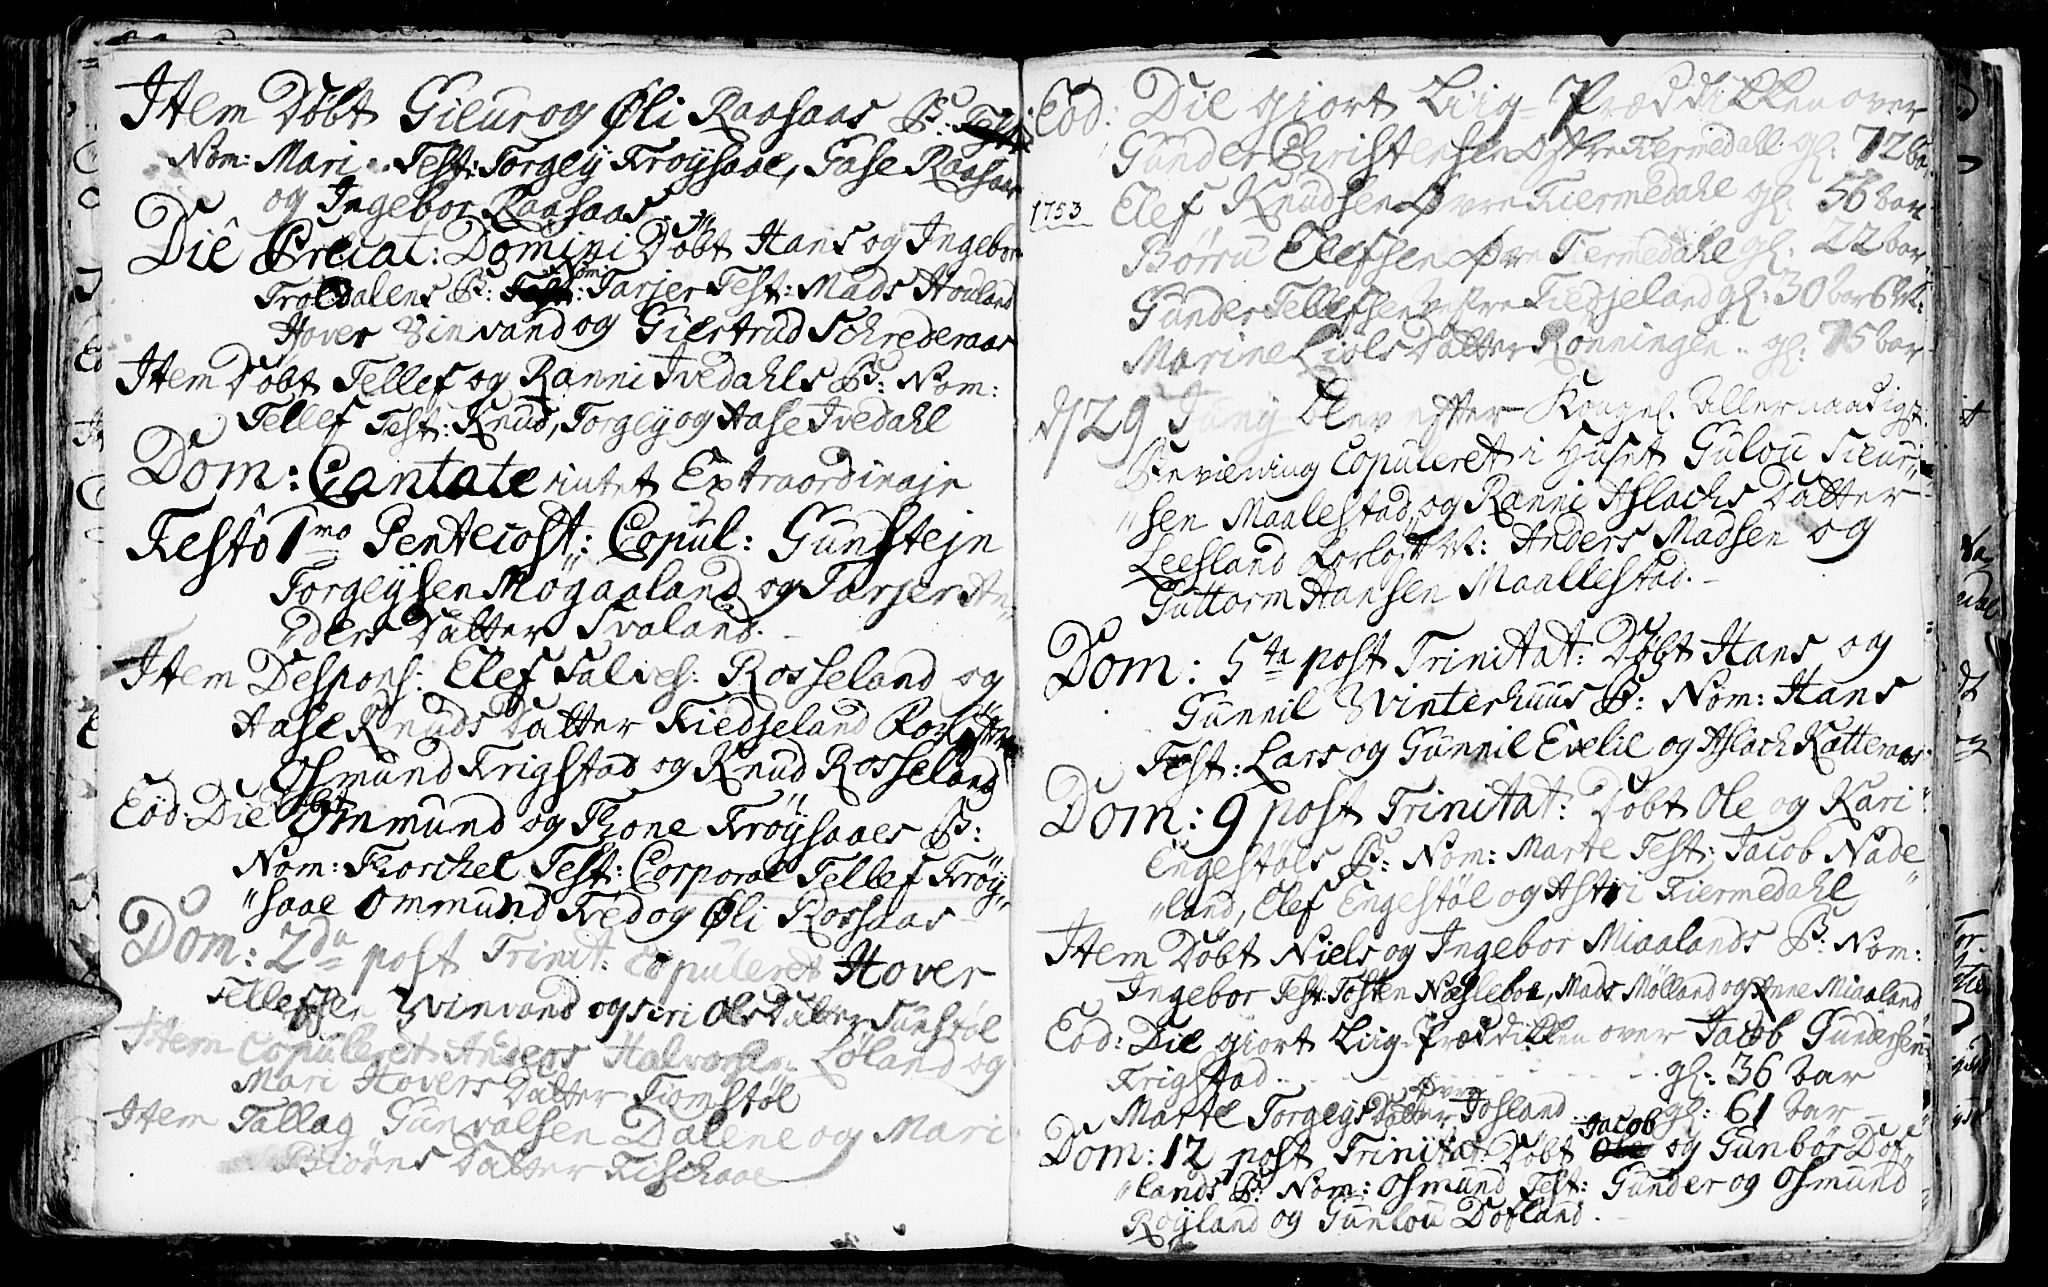 Item Døbt Gieur og Øli Raasaas B:
Nom: Mari Test: Torgey Frøysaae, Gase Raasaas
og Ingebor Raasaas
Die Precat: Domini Døbt Hans og Ingebor
Troldalens B: Nom: Tarjer Test: Mads Houland
Hover Vinvand og Giertrud Schrederaas
Item Døbt Tellef og Ranni Ivedahls B: Nom:
Tellef Test: Knud, Torgey og Aase Ivedahl
Dom: Cantate intet Extraordinair
Festo 1mo Pentecost: Copul: Gunstejn
Torgeysen Mogaaland og Tarjer An„
„ders Datter Svaland.
Item Despons: Elef Salves: Rosseland og
Aase Knuds Datter Kiedjeland
Osmund Frigstad og Knud Rosseland
Eod: Die Døbt Ommund og Thone Frøysaaes B:
Nom: Thorchel Test: Corporal Tellef Frøy„
„saae Ommund Tved og Øli Rossaas
Dom: 2da post Trinit: Copuleret Hover
Tellefsen Winvand og Siri Ols Datter Sunstøl
Item Copuleret Anders Halvorsen Løland og
Mari Hovers Datter Tomstøl
Item Tallag Gunvalsen Dalene og Mari
Biørns Datter Fischaae
Eod: Die giort Liig-Præddikken over
Gunder Christensen Øvre Kiermedall gl: 72 bar
1753 Elef Knudsen Øvre Kiermedahl gl: 56 bar
Børru Elefsen Øvre Kiermedahl gl: 22 bar
Gunder Tellefsen Kiedjeland gl: 30 bar 6 M:
Marine Liøls Datter Rønningen .. gl: 75 bar
d/29 Juny blev efter Kongel. Allernaadigst
Bevilening Copuleret i Huset Gulou Sieur„
„sen Maalestad og Ranni Aslachs Datter
Leesland Anders Madsen og
Guttorm Hansen Maallestad.
Dom: 5ta post Trinitat: Døbt Hans og
Gunnil Winterhuus B: Nom: Hans
Test: Lars og Gunnil Evelie og Aslach Katteraas
Dom: 9 post Trinitat: Døbt Ole og Kari
Engestøls B: Nom: Marte Test: Jacob Nade„
„land, Elef Engestøl og Astri Kiermedahl
Item Døbt Niels og Ingebor Miaalands B: Nom:
Ingebor Test: Tosten Næsleboe, Mads Mølland og Anne Miaaland
Eod: Die giort Liig-Præddikken over Jacob Gundersen
Frigstad .. gl: 36 bar
Marte Torgeys Datter Øvre Josland .. gl: 61 bar
Dom: 12 post Trinitat: Døbt Jacob og Gunbør Dof„
„lands B: Nom: Osmund Test: Gunder og Osmund
Røyland og Gunlou Dofland.